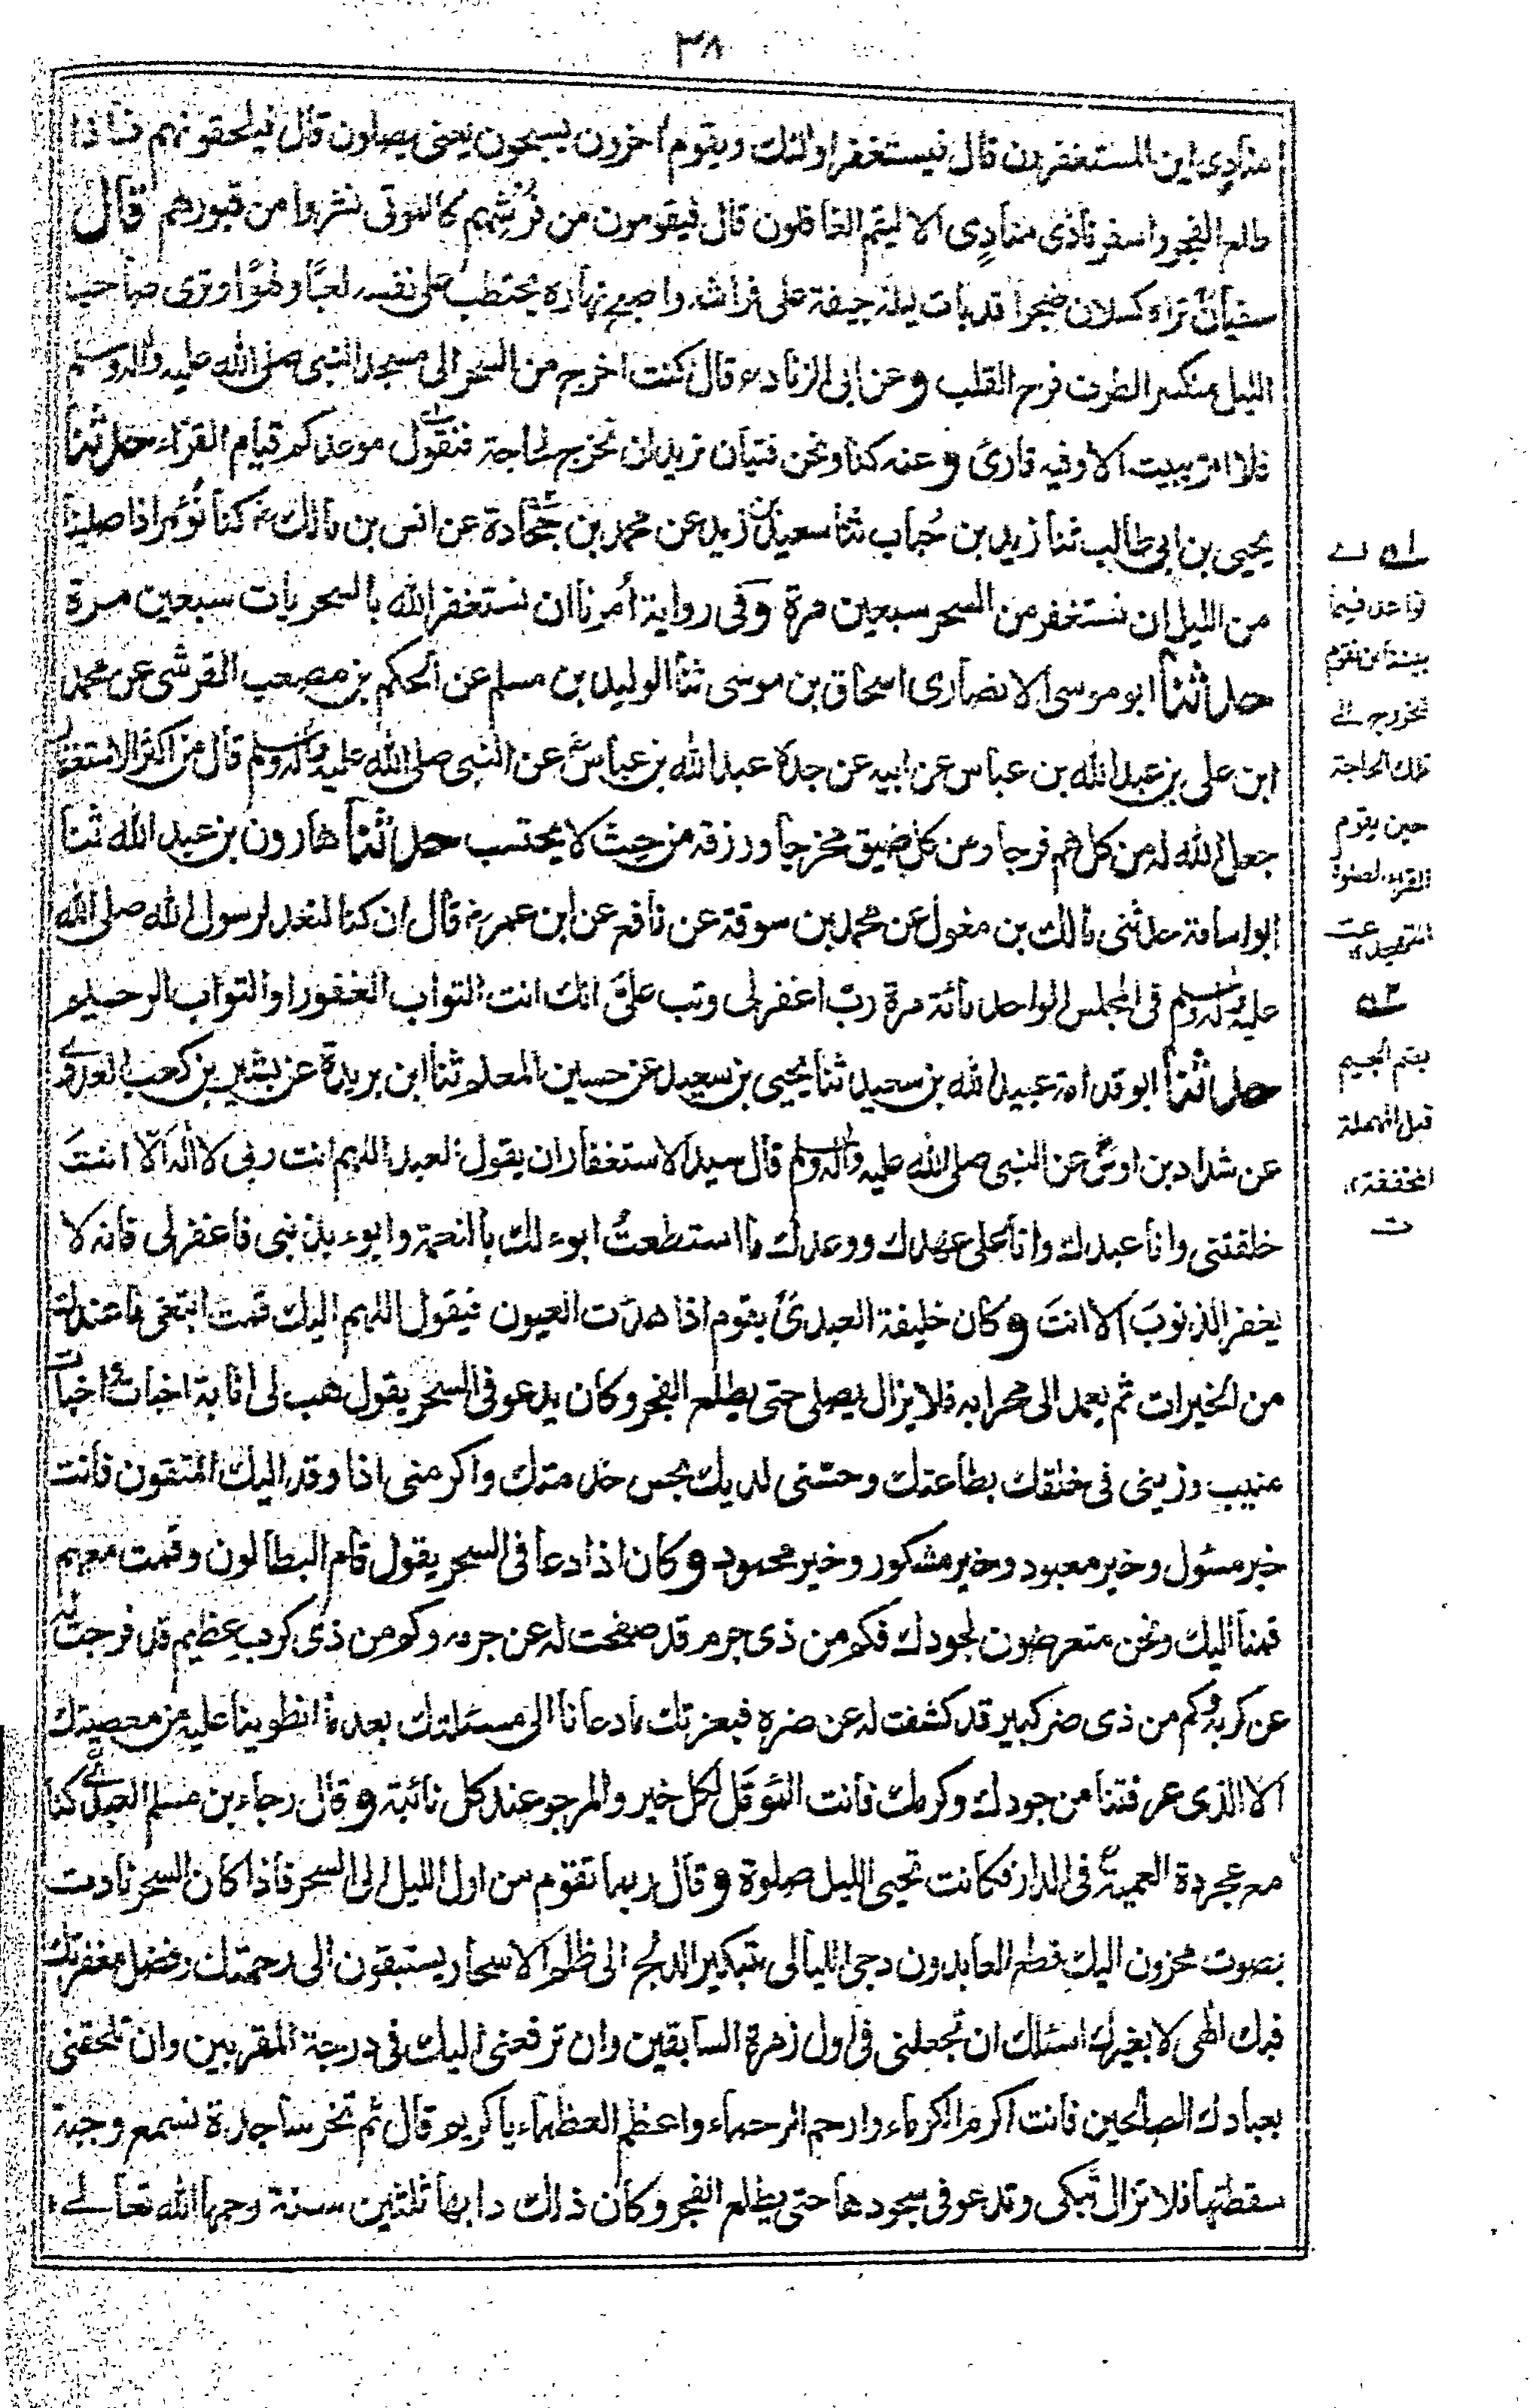 ٣٨
منادي اين المستغفرون قال فيستغفر اولئك ويقوم اخرون يسبحون يعنى يصلون قال فيلحقونهم فاذا
طلع الفجر واسفر نادى منادِى الا ليقم الغافلون قال فيقومون من فُرُشِهم كالموتى نشروا من قبورهم قال
سفيانؒ تراه كسلان ضجرا قد بات ليلة جيفة على فراشه واصبح نهاره يحتطب على نفسه لعبًا ولهوًا وترى صاحب
الليل منكسر الطرف فرح القلب وعن ابى الزنادؒ قال كنت اخرج من السحر الى مسجد النبى صلى الله عليه واله وسلم
فلا امر ببيت الا وفيه قارئ وعنه كنا ونحن فتيان نريد ان نخرج لحاجة فنقول موعدكم قيام القراء حدثنا
يحيى بن ابى طالب ثنا زيد بن حُباب ثنا سعيد بن زيد عن محمد بن جُحَادة عن انس بن مالكؓ كنا نُؤمر اذا صلينا
من الليل ان نستغفر من السحر سبعين مرة وفى رواية اُمرنا ان نستغفر الله بالسحريات سبعين مرة
حدثنا ابو موسى الانصارى اسحاق بن موسى ثنا الوليد بن مسلم عن الحكم بن مصعب القرشى عن محمد
ابن على بن عبد الله بن عباس عن ابيه عن جده عبد الله بن عباسؓ عن النبى صلى الله عليه واله وسلم قال من اكثر الاستغفار
جعل الله له من كل هم فرجا ومن كل ضيق مخرجا ورزقه من حيث لا يحتسب حدثنا هارون بن عبد الله ثنا
ابو اسامة حدثنى مالك بن مغول عن محمد بن سوقة عن نافع عن ابن عمرؓ قال ان كنا لنعد لرسول الله صلى الله
عليه واله وسلم فى المجلس الواحد مائة مرة ربّ اغفر لى وتب علىَّ انك انت التواب الغفور او التواب الرحيم
حدثنا ابو قدامة عبيد الله بن سعيد ثنا يحيى بن سعيد عن حسين المعلم ثنا ابن بريدة عن بشير بن كعب العدوى
عن شداد بن اوسؓ عن النبى صلى الله عليه واله وسلم قال سيد الاستغفار ان يقول العبد اللهم انت ربى لا اله الا انتَ
خلقتنى وانا عبدك وانا على عهدك ووعدك ما استطعتُ ابوء لك بالنعمة وابوء بذنبى فاغفر لى فانه لا
يغفر الذنوبَ الا انتَ وكان خليفة العبدىؒ يقوم اذا هدَأت العيون فيقول اللهم اليك قمت ابتغى ما عندك
من الخيرات ثم يعمد الى محرابه فلا يزال يصلى حتى يطلع الفجر وكان يدعو فى السحر يقول هب لى انابة اخبات واخبات
منيب وزينى فى خلقك بطاعتك وحسّنى لديك بحسن خدمتك واكرمنى اذا وفد اليك المتقون فانت
خير مسئول وخير معبود وخير مشكور وخير محمود وكان اذا دعا فى السحر يقول قام البطالون وقمت معهم
قمنا اليك ونحن متعرضون لجودك فكم من ذى جرم قد صفحت له عن جرمه وكم من ذى كرب عظيم قد فرجت له
عن كربه وكم من ذى ضر كبير قد كشفت له عن ضره فبعزتك ما دعانا الى مسئلتك بعد ما انطوينا عليه من معصيتك
الا الذى عرفتنا من جودك وكرمك فانت المؤمّل لكل خير والمرجو عند كل نائبة وقال رجاء بن مسلم العبدىؒ كنا
مع عجردة العميةؒ فى الدار فكانت تحيى الليل صلوة وقال ربما تقوم من اول الليل الى السحر فاذا كان السحر نادت
بصوت محزون اليك قطع العابدون دجى الليالى بتبكير الدلج الى ظلم الاسحار يستبقون الى رحمتك وفضل مغفرتك
فبك الهى لا بغيرك اسئلك ان تجعلنى فى اول زمرة السابقين وان ترفعنى اليك فى درجة المقربين وان تلحقنى
بعبادك الصالحين فانت اكرم الكرماء وارحم الرحماء واعظم العظماء يا كريم قال ثم تخر ساجدة نسمع وجبة
سقطتها فلا تزال تبكى وتدعو فى سجودها حتى يطلع الفجر وكان ذلك دابها ثلثين سنة رحمها الله تعالى
تواعد فيما
بيننا ان نقوم
لخروج الى
تلك الحاجة
حين يقوم
القراء لصلوة
التهجد
بضم الجيم
قبل المهملة
المخففة